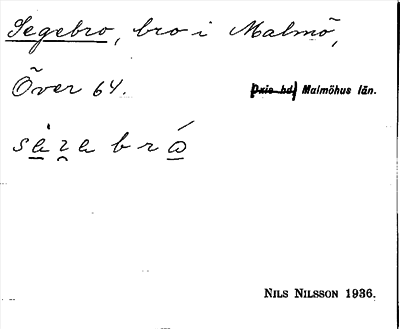 Segebro, bro i Malmö,
Över 64. Oxie hd, Malmöhus län.
NILS NILSSON 1936.